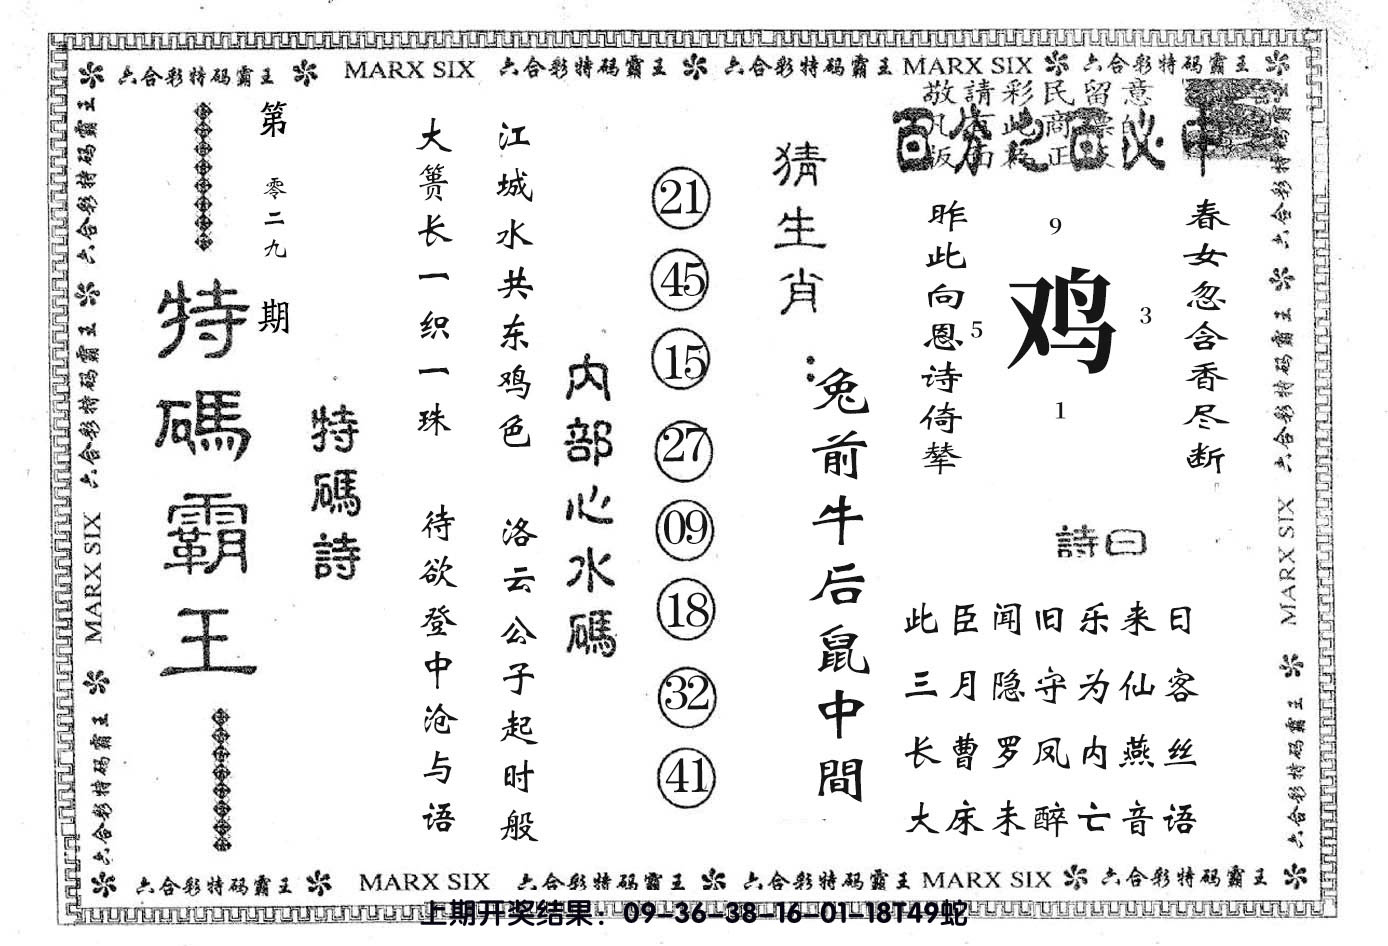 六合彩特码霸王 MARX SIX 六合彩特码霸王 六合彩特码霸王 MARX SIX 六合彩特码霸王
敬請彩民留意
百分之百必中
春女忽含香尽断
昨此向恩诗倚辇
9
鸡
5
3
1
詩曰
此臣闻旧乐来日
三月隐守为仙客
长曹罗凤内燕丝
大床未醉亡音语
猜生肖：
兔前牛后鼠中間
21
45
15
27
09
18
32
41
内部心水碼
江城水共东鸡色
洛云公子起时般
大篑长一织一珠
待欲登中沧与语
特碼詩
第零二九期
特碼霸王
六合彩特码霸王 六合彩特码霸王 MARX SIX 六合彩特码霸王
六合彩特码霸王 六合彩特码霸王 MARX SIX 六合彩特码霸王
六合彩特码霸王 MARX SIX 六合彩特码霸王 六合彩特码霸王 MARX SIX 六合彩特码霸王
上期开奖结果：09-36-38-16-01-18T49蛇